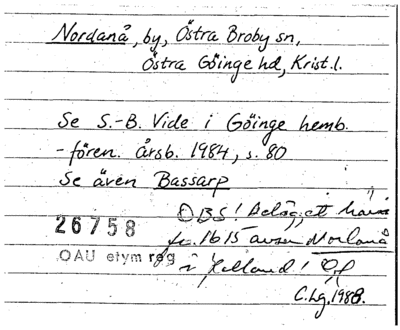 Nordanå, by, Östra Broby sn,
Östra Göinge hd, Krist. l.
Se S.-B. Vide i Göinge hemb.
-fören. årsb. 1984, s. 80
Se även Bassarp
OBS! Belägg ett
fr. 1615 avser Norlanå
26758
i Halland!
OAU etym reg
C.Lg. 1988.